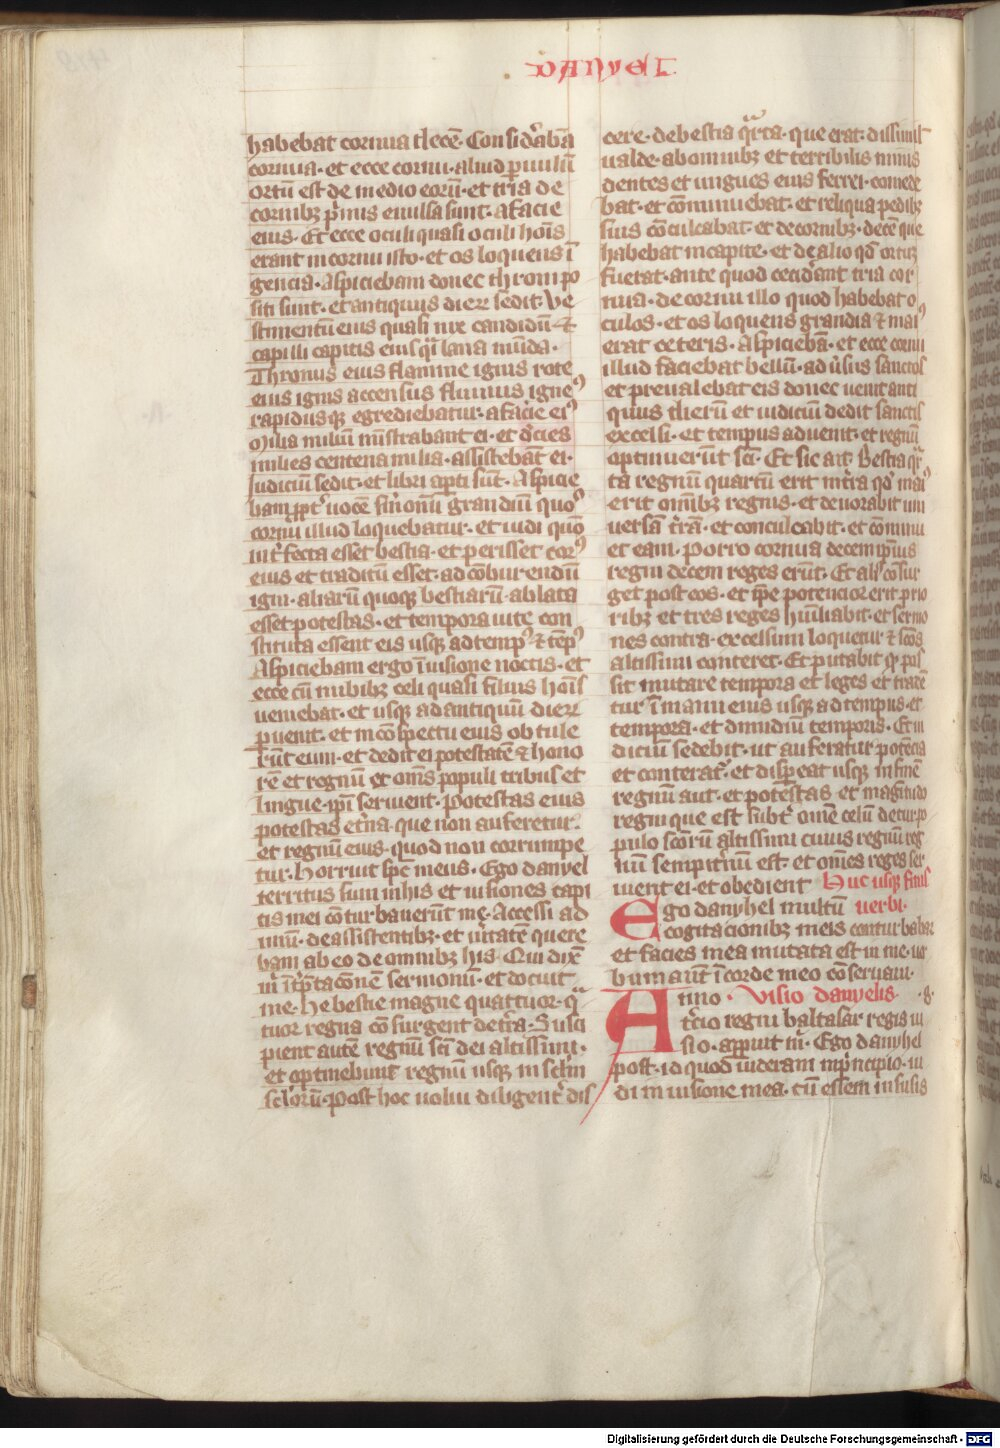 DANYEL
habebat cornua decē. Considˀabā
cornua· et ecce cornu· aliud puulū
ortū est de medio eorū· et tria de
cornibꝫ pˀmis euulsa sunt· a facie
eius· Et ecce oculi quasi oculi hoīs
erant in cornu isto· et os loquens ī
gencia· Aspiciebam donec throni po
siti sunt· et antiquus dierꝝ sedit· Ve
stimentū eius quasi nix candidū ⁊
capilli capitis eius qͣi lana mūda·
Thronus eius flamme ignis rote
eius ignis accensus fluuius igneꝰ
rapidusqꝫ egrediebatur· a facie eiꝰ
Milia miliū mīstrabant ei· et dˀcies
milies centena milia· assistebāt ei·
Judiciū sedit· et libri apti sūt· Aspicie
bam ꝓptˀ uocē sˀmonū grandiū quoˢ
cornu illud loquebatur· et uidi quō
intˀfecta esset bestia· et perisset corꝰ
eius et traditū esset· ad cōburendū
igni· aliarū quoqꝫ bestiarū· ablata
esset potestas· et tempora uite con
stituta essent eis usqꝫ ad tempꝰ ⁊ tēpꝰ
Aspiciebam ergo ī uisione noctis· et
ecce cū nubibꝫ celi quasi filius hoīs
ueniebat· et usqꝫ ad antiquū dierꝝ
puenit· et in cōspectu eius obtule
rūt eum· et dedit ei potestatē ⁊ hono
rē et regnū et om̄s populi tribus et
lingue· ipī seruient· Potestas eius
potestas etˀna· que non auferetur·
et regnū eius· quod non corrumpe
tur· Horruit spc̄ meus· Ego danyel
territus sum in his et uisiones capi
tis mei cōturbauerūt me· Accessi ad
unū· de assistentibꝫ· et uˀitatē quere
bam ab eo de omnibꝫ his· Qui dixˀ
m̄ īt̄ptacōnē sermonū· et docuit
me· He bestie magne quattuor· qͣ
tuor regna cōsurgent de tˀra· Susci
pient autē regnū sc̄i dei altissimi·
et optinebunt regnū usqꝫ in sclm̄
sclorū· Post hoc uolui diligentˀ dis
cere· de bestia qͣrta· que erat· dissimilˀ
ualde· ab omnibꝫ et terribilis nimis
dentes et ungues eius ferrei· comede
bat· et cōminuebat· et reliqua pedibꝫ
suis cōculcabat· et de cornibꝫ· decē que
habebat in capite· et de alio qd̄ ortū
fuerat· ante quod cecidˀant tria cor
nua· de cornu illo quod habebat o
culos· et os loquens grandia ⁊ maiꝰ
erat ceteris· Aspiciebā· et ecce cornu
illud faciebat bellū· adˀuˀsus sanctos
et preualebat eis donec uenit anti
quus dierū et iudiciū dedit sanctis
excelsi· et tempus aduenit· et regnū
optinuerūt sc̄i· Et sic ait· Bestia qͣr
ta regnū quartū erit in tˀra qd̄ maiꝰ
erit omībꝫ regnis· et deuorabit uni
uersā tˀrā· et conculcabit· et cōminu
et eam· Porro cornua decem ipīus
regni decem reges erūt· Et aliꝰ cōsur
get post eos· et ipē potencior erit prio
ribꝫ et tres reges hūiliabit· et sermo
nes contra· excelsum loquetur ⁊ sc̄os
altissimi conteret· Et putabit qͥ pos
sit mutare tempora et leges et tradē
tur ī manu eius usqꝫ ad tempus· et
tempora· et dimidiū temporis· Et iu
diciū sedebit· ut auferatur potēcia
et conteratˀ· et dispereat usqꝫ in finē
regnū aut· et potestas et magnitudo
regni que est subtˀ omē celū detur po
pulo sc̄orū altissimi cuius regnū reg
nū sempitˀnū est· et om̄es reges ser
uient ei· et obedient Huc usqꝫ finis
Ego danyhel multū uerbi·
cogitacionibꝫ meis conturbabar
et facies mea mutata est in me· uer
bum aūt ī corde meo cōseruaui·
Anno · Visio danyelis ·8·
tˀcio regni baltasar regis ui
sio· apparuit m̄· Ego danyhel
post· id quod uideram in pˀncipio· ui
di in uisione mea· cū essem in susis
Digitalisierung gefördert durch die Deutsche Forschungsgemeinschaft - DFG